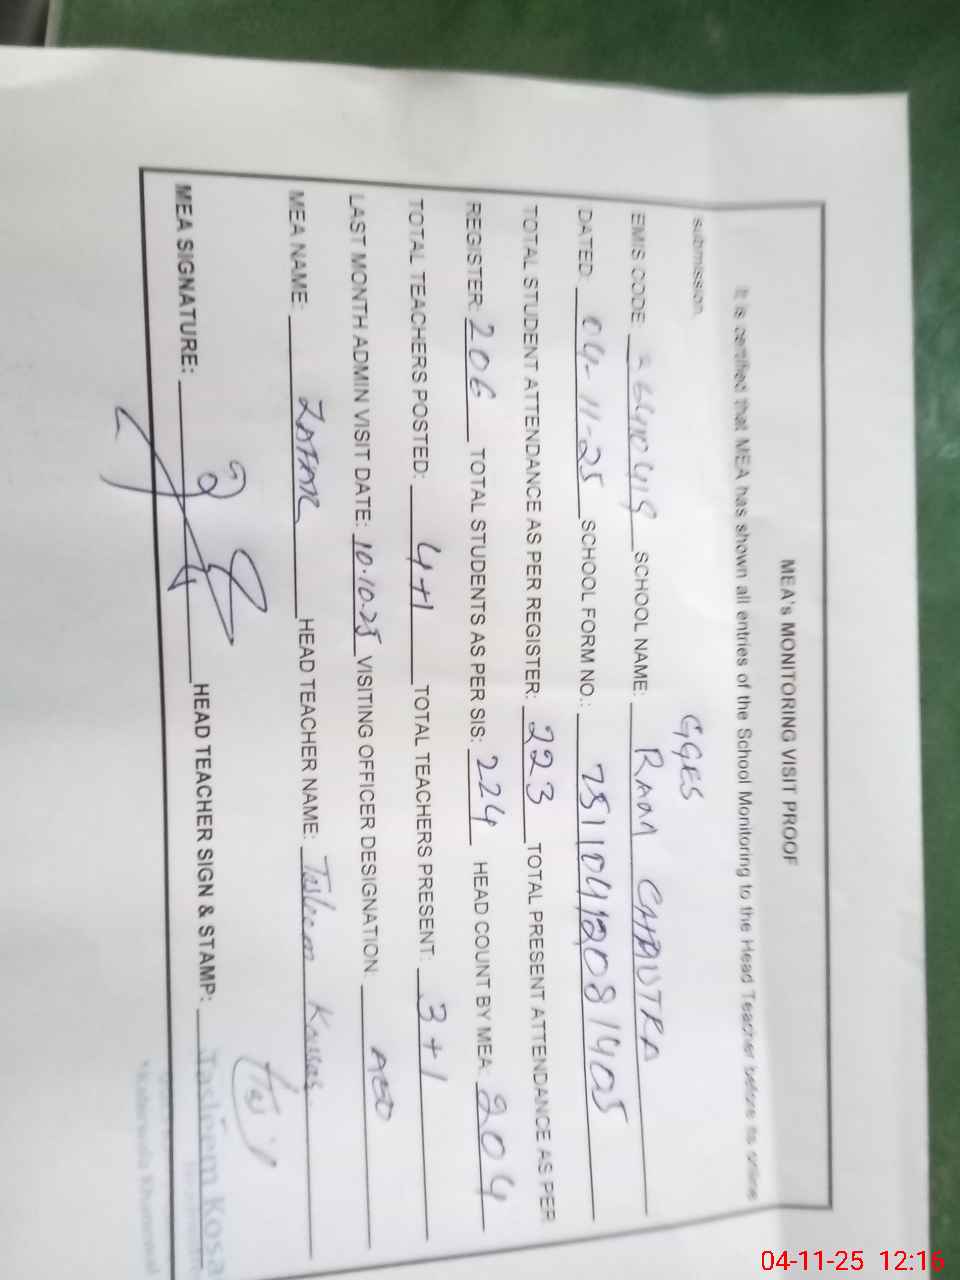 MEA's MONITORING VISIT PROOF
It is certified that MEA has shown all entries of the School Monitoring to the Head Teacher before its online
submission.
GGES
EMIS CODE SCHOOL NAME: RAAN CHAUTRA
DATED: 04-11-25 SCHOOL FORM NO.: 7511041208 1405
TOTAL STUDENT ATTENDANCE AS PER REGISTER: 223 TOTAL PRESENT ATTENDANCE AS PER
REGISTER: 206 TOTAL STUDENTS AS PER SIS: 224 HEAD COUNT BY MEA: 204
TOTAL TEACHERS POSTED: 4+1 TOTAL TEACHERS PRESENT: 3+1
LAST MONTH ADMIN VISIT DATE: 10.10.25 VISITING OFFICER DESIGNATION: AEO
MEA NAME: ZAFAR HEAD TEACHER NAME: Tasleem Kousar
MEA SIGNATURE: HEAD TEACHER SIGN & STAMP:
Tasleem Kosa
04-11-25 12:16